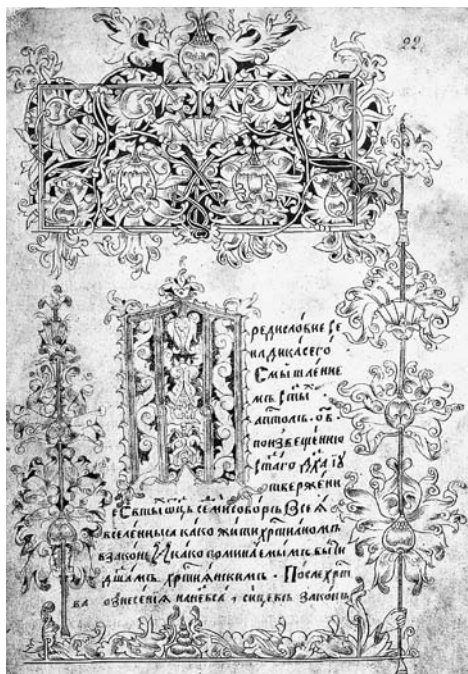 22.
Предисловие се
надикасего
Смышление
мъ сты
аптолъ. об
поизвещению
стаго дха ĭ у
твержени
е Свтыı оць семисоборъ Всея
вселенныѧ како жити хртианомъ
взаконе И како поминаемымъ быти
дшамъ хртиянскимъ . После хрт
ва ознесения нанебса , сицевъ законъ